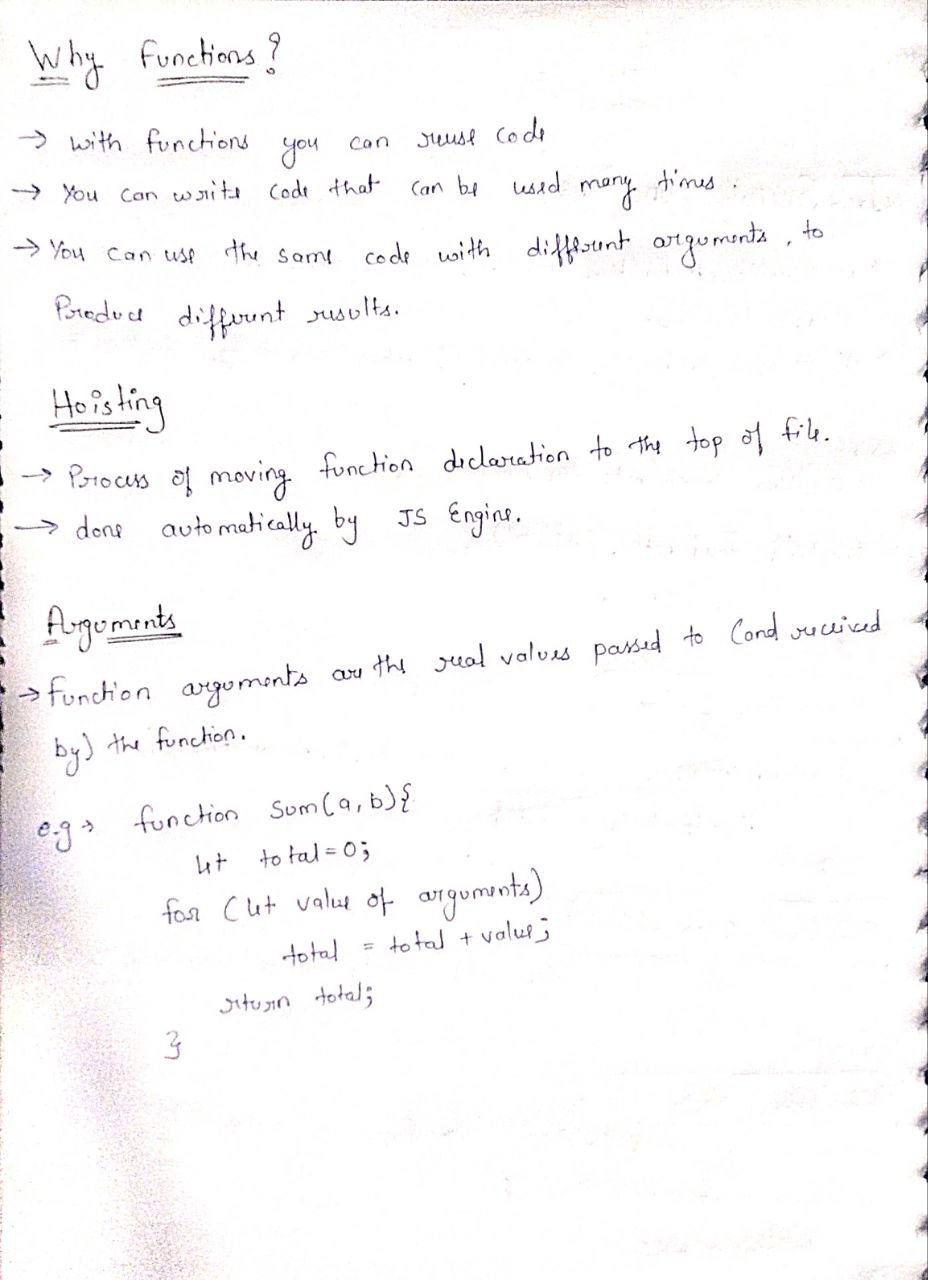 Why Functions?
→ with functions you can reuse code
→ You can write code that can be used many times.
→ You can use the same code with different arguments, to
Produce different results.
Hoisting
→ Process of moving function declaration to the top of file.
→ done automatically by JS Engine.
Arguments
→ function arguments are the real values passed to (and received
by) the function.
e.g → function sum(a,b){
let total=0;
for (let value of arguments)
total = total + value;
return total;
}